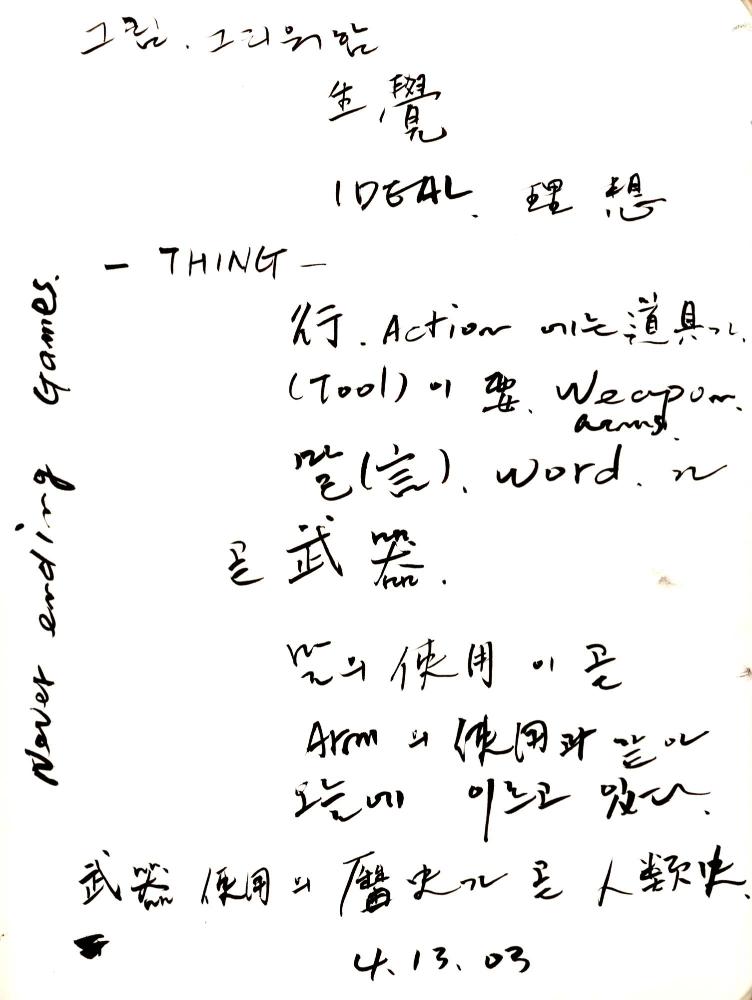 그림. 그리워함
生覺
IDEAL. 理想
- THING -
行. Action 에는 道具가.
(Tool) 이 要. Weapon.
arms.
말(言). word. 가
곧 武器.
말의 使用 이 곧
Arm 의 使用과 같아
오늘에 이르고 있다.
武器 使用의 歷史가 곧 人類史.
4.13.03
Never ending Games.